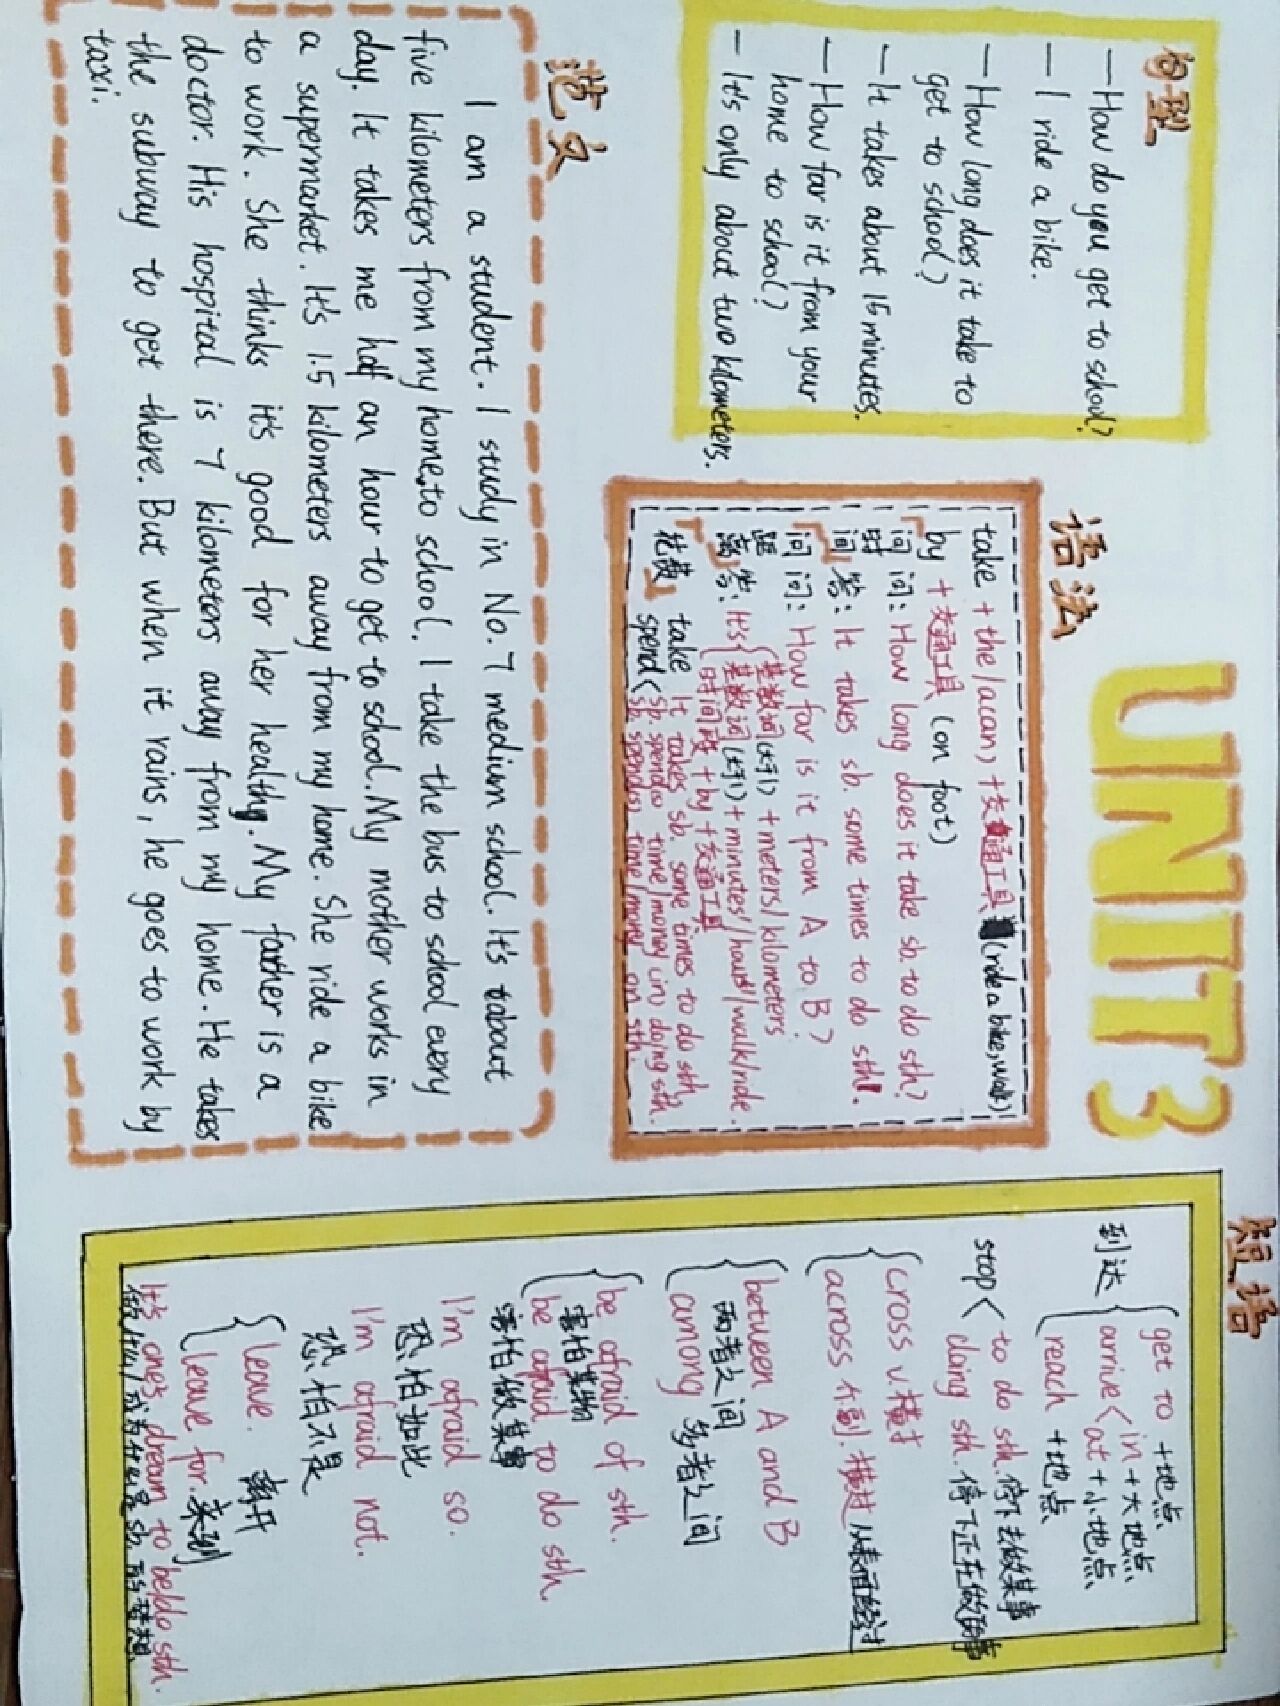 UNIT 3
句型
— How do you get to school?
— I ride a bike.
— How long does it take to
get to school?
— It takes about 15 minutes.
— How far is it from your
home to school?
— It's only about two kilometers.
语法
take + the/a(an) +交通工具 (ride a bike, walk)
by +交通工具 (on foot)
问时间
问: How long does it take sb. to do sth?
答: It takes sb. some times to do sth.
问距离
问: How far is it from A to B?
答: It's
基数词(大于1) + meters/kilometers
基数词(大于1) + minutes'/hours'/walk/ride.
时间段 + by +交通工具
花费
take It takes sb. some times to do sth.
spend
sb. spend(s) time/money (in) doing sth.
sb. spend(s) time/money on sth.
范文
I am a student. I study in No.7 medium school. It's about
five kilometers from my home to school. I take the bus to school every
day. It takes me half an hour to get to school. My mother works in
a supermarket. It's 1.5 kilometers away from my home. She ride a bike
to work. She thinks it's good for her healthy. My father is a
doctor. His hospital is 7 kilometers away from my home. He takes
the subway to get there. But when it rains, he goes to work by
taxi.
短语
到达
get to +地点
arrive
in +大地点
at +小地点
reach +地点
stop
to do sth. 停下去做某事
doing sth. 停下正在做的事
cross v.横过
across 介/副.横过 从表面经过
between A and B
两者之间
among 多者之间
be afraid of sth.
害怕某物
be afraid to do sth.
害怕做某事
I'm afraid so.
恐怕如此
I'm afraid not.
恐怕不是
leave. 离开
leave for. 来到
It's one's dream to be/do sth.
做什么/成为什么是sb.的梦想.